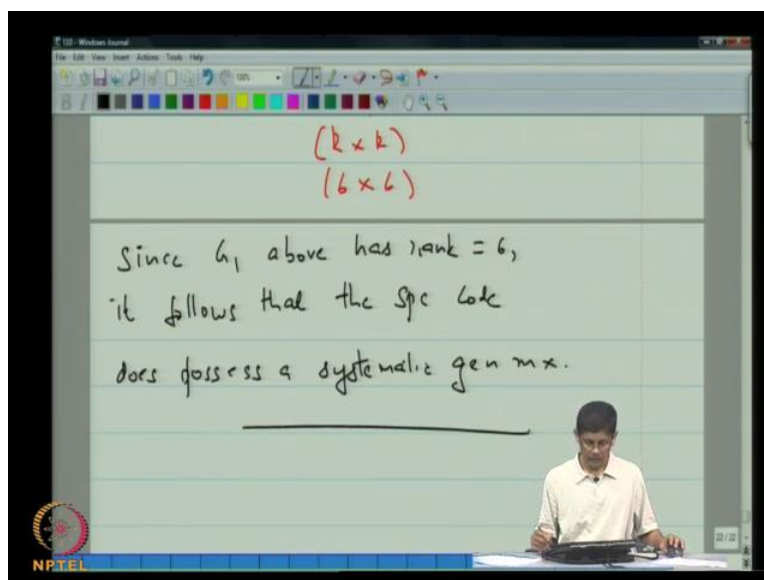 110 - Windows Journal
File Edit View Insert Actions Tools Help
100%
(k x k)
(6 x 6)
Since G1 above has rank = 6,
it follows that the spc code
does possess a systematic gen mx.
22/22
NPTEL